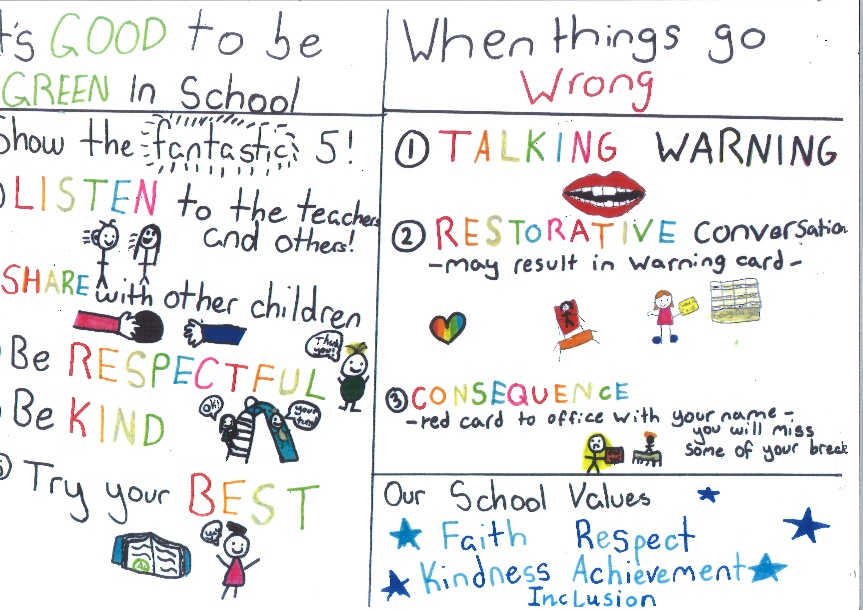 t's GOOD to be
GREEN In School
Show the fantastic 5!
LISTEN to the teachers
and others!
SHARE with other children
Be RESPECTFUL
Thank
you!
Be KIND
Ok!
your
turn
5 Try your BEST
When things go
Wrong
1 TALKING WARNING
2 RESTORATIVE conversation
-may result in warning card-
3 CONSEQUENCE
-red card to office with your name-
you will miss
some of your break
Our School Values
Faith Respect
Kindness Achievement
Inclusion